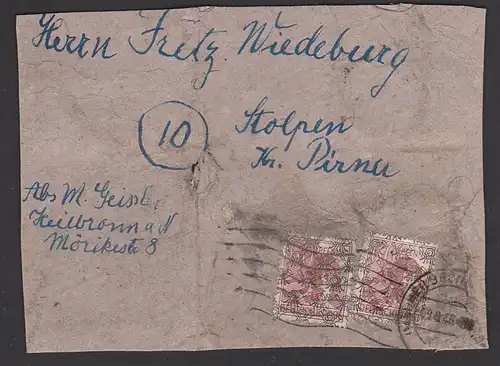 Herrn Fretz Wiedeburg
10
Stolpen
Kr. Pirna
Abs M. Geissler
Heilbronn a N
Mörikestr 8